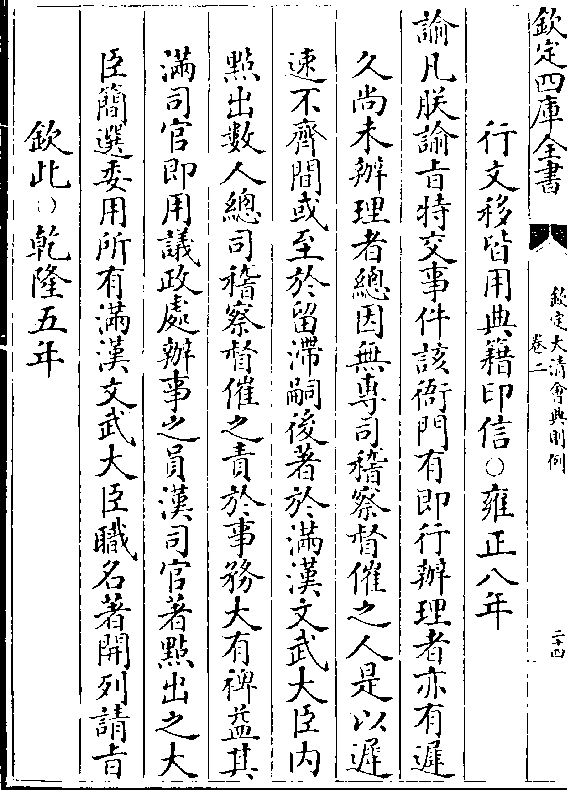 欽定四庫全書
欽定大清會典則例
卷二
二十四
行文移皆用典籍印信〇雍正八年
諭凡朕諭旨特交事件該衙門有即行辦理者亦有遲
久尚未辦理者總因無專司稽察督催之人是以遲
速不齊間或至於留滯嗣後著於滿漢文武大臣内
點出數人總司稽察督催之責於事務大有裨益其
滿司官即用議政處辦事之員漢司官著點出之大
臣簡選委用所有滿漢文武大臣職名著開列請旨
欽此〇乾隆五年